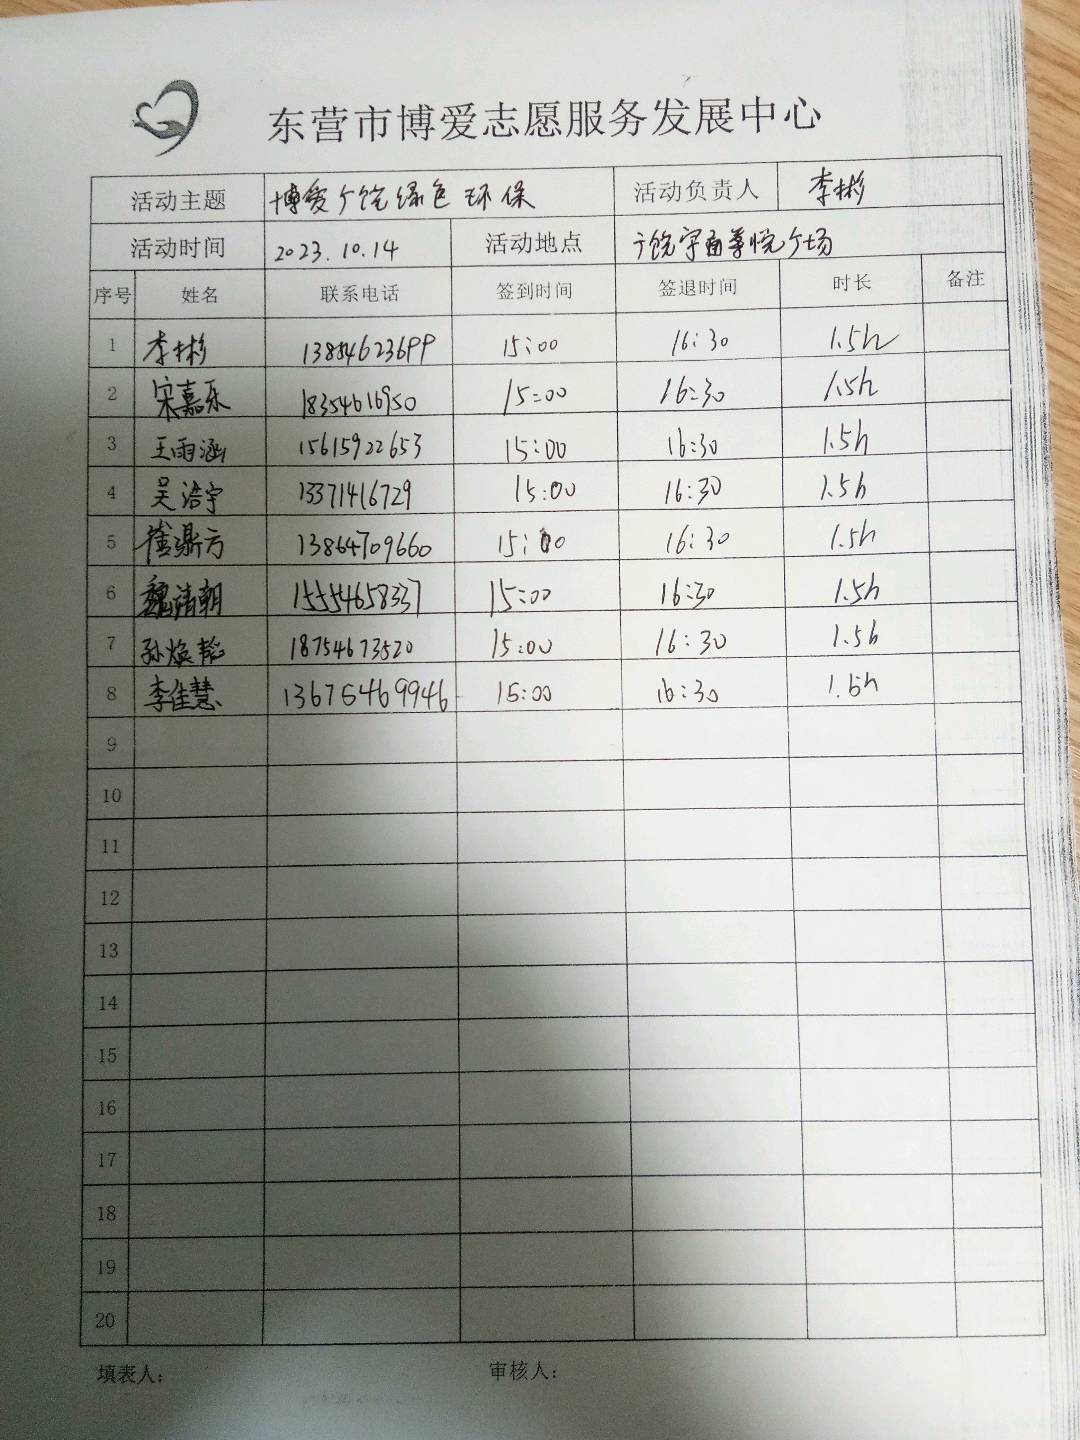 东营市博爱志愿服务发展中心
活动主题 博爱广饶绿色环保 活动负责人 李彬
活动时间 2023.10.14 活动地点 广饶宇通尊悦广场
序号 姓名 联系电话 签到时间 签退时间 时长 备注
1 李彬 13854623699 15:00 16:30 1.5h
2 宋嘉乐 18354616950 15:00 16:30 1.5h
3 王雨涵 15615922653 15:00 16:30 1.5h
4 吴浩宇 13371416729 15:00 16:30 1.5h
5 崔灏方 13864709660 15:00 16:30 1.5h
6 魏清朝 15554658337 15:00 16:30 1.5h
7 孙焕韬 18754673520 15:00 16:30 1.5h
8 李佳慧 13675469946 15:00 16:30 1.5h
9
10
11
12
13
14
15
16
17
18
19
20
填表人: 审核人: